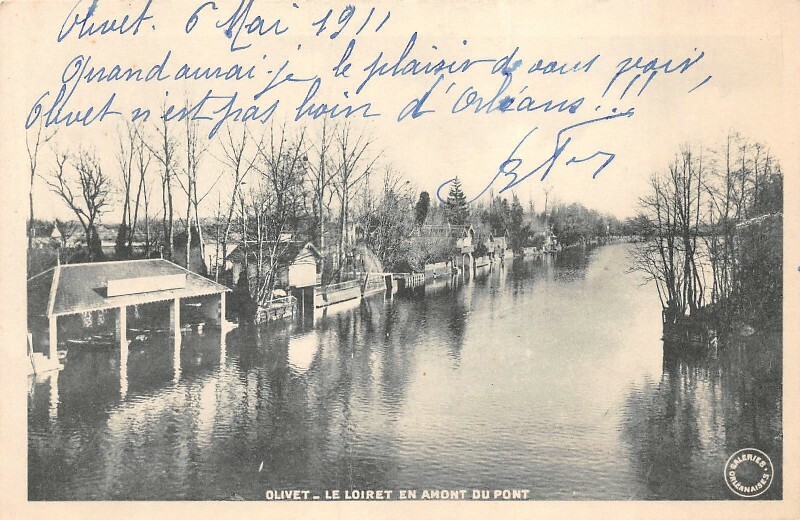 Olivet. 6 Mai 1911
Quand aurai-je le plaisir de vous voir,
Olivet n'est pas loin d'Orléans!!!
OLIVET _ LE LOIRET EN AMONT DU PONT
GALERIES
ORLÉANAISES